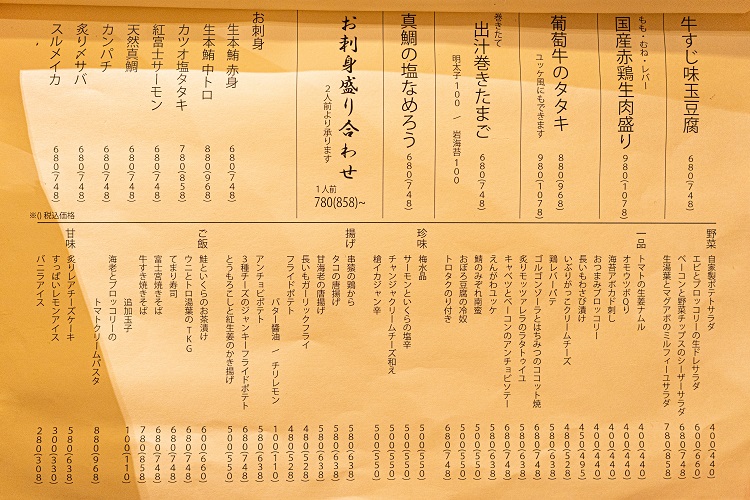 牛すじ味玉豆腐
680(748)
もも・むね・レバー
国産赤鶏生肉盛り
980(1078)
葡萄牛のタタキ
880(968)
ユッケ風にもできます
980(1078)
巻きたて
出汁巻きたまご
680(748)
明太子100 / 岩海苔100
真鯛の塩なめろう
680(748)
お刺身盛り合わせ
2人前より承ります
1人前
780(858)~
お刺身
生本鮪 赤身
680(748)
生本鮪 中トロ
880(968)
カツオ塩タタキ
780(858)
紅富士サーモン
680(748)
天然真鯛
680(748)
カンパチ
680(748)
炙り〆サバ
680(748)
スルメイカ
680(748)
※()税込価格
野菜
自家製ポテトサラダ 400(440)
エビとブロッコリーの生ドレサラダ 600(660)
ベーコンと野菜チップスのシーザーサラダ 680(748)
生湯葉とマグアボのミルフィーユサラダ 780(858)
一品
トマトの生姜ナムル 400(440)
オモウツボQり 400(440)
海苔アボカド刺し 400(440)
おつまみブロッコリー 400(440)
長いもわさび漬け 450(495)
いぶりがっこクリームチーズ 480(528)
鶏レバーパテ 580(638)
ゴルゴンゾーラとはちみつのココット焼 680(748)
炙りモッツアレラのラタトゥイユ 580(638)
キャベツとベーコンのアンチョビソテー 680(748)
えんがわユッケ 500(550)
鯖のみぞれ南蛮 580(638)
おぼろ豆腐の冷奴 500(550)
トロタクのり付き 680(748)
珍味
梅水晶 500(550)
サーモンといくらの塩辛 500(550)
チャンジャクリームチーズ和え 500(550)
槍イカジャン辛 500(550)
揚げ
串猿の鶏から 580(638)
タコの唐揚げ 580(638)
甘海老の唐揚げ 580(638)
長いもガーリックフライ 480(528)
フライドポテト 480(528)
バター醤油 / チリレモン 100(110)
アンチョビポテト 580(638)
3種チーズのジャンキーフライドポテト 680(748)
とうもろこしと紅生姜のかき揚げ 500(550)
ご飯
鮭といくらのお茶漬け 600(660)
ウニとトロ湯葉のTKG 680(748)
てまり寿司 680(748)
富士宮焼きそば 680(748)
牛すき焼きそば 780(858)
追加玉子 100(110)
海老とブロッコリーの
トマトクリームパスタ 880(968)
甘味
炙りレアチーズケーキ 580(638)
すっぱいレモンアイス 300(330)
バニラアイス 280(308)